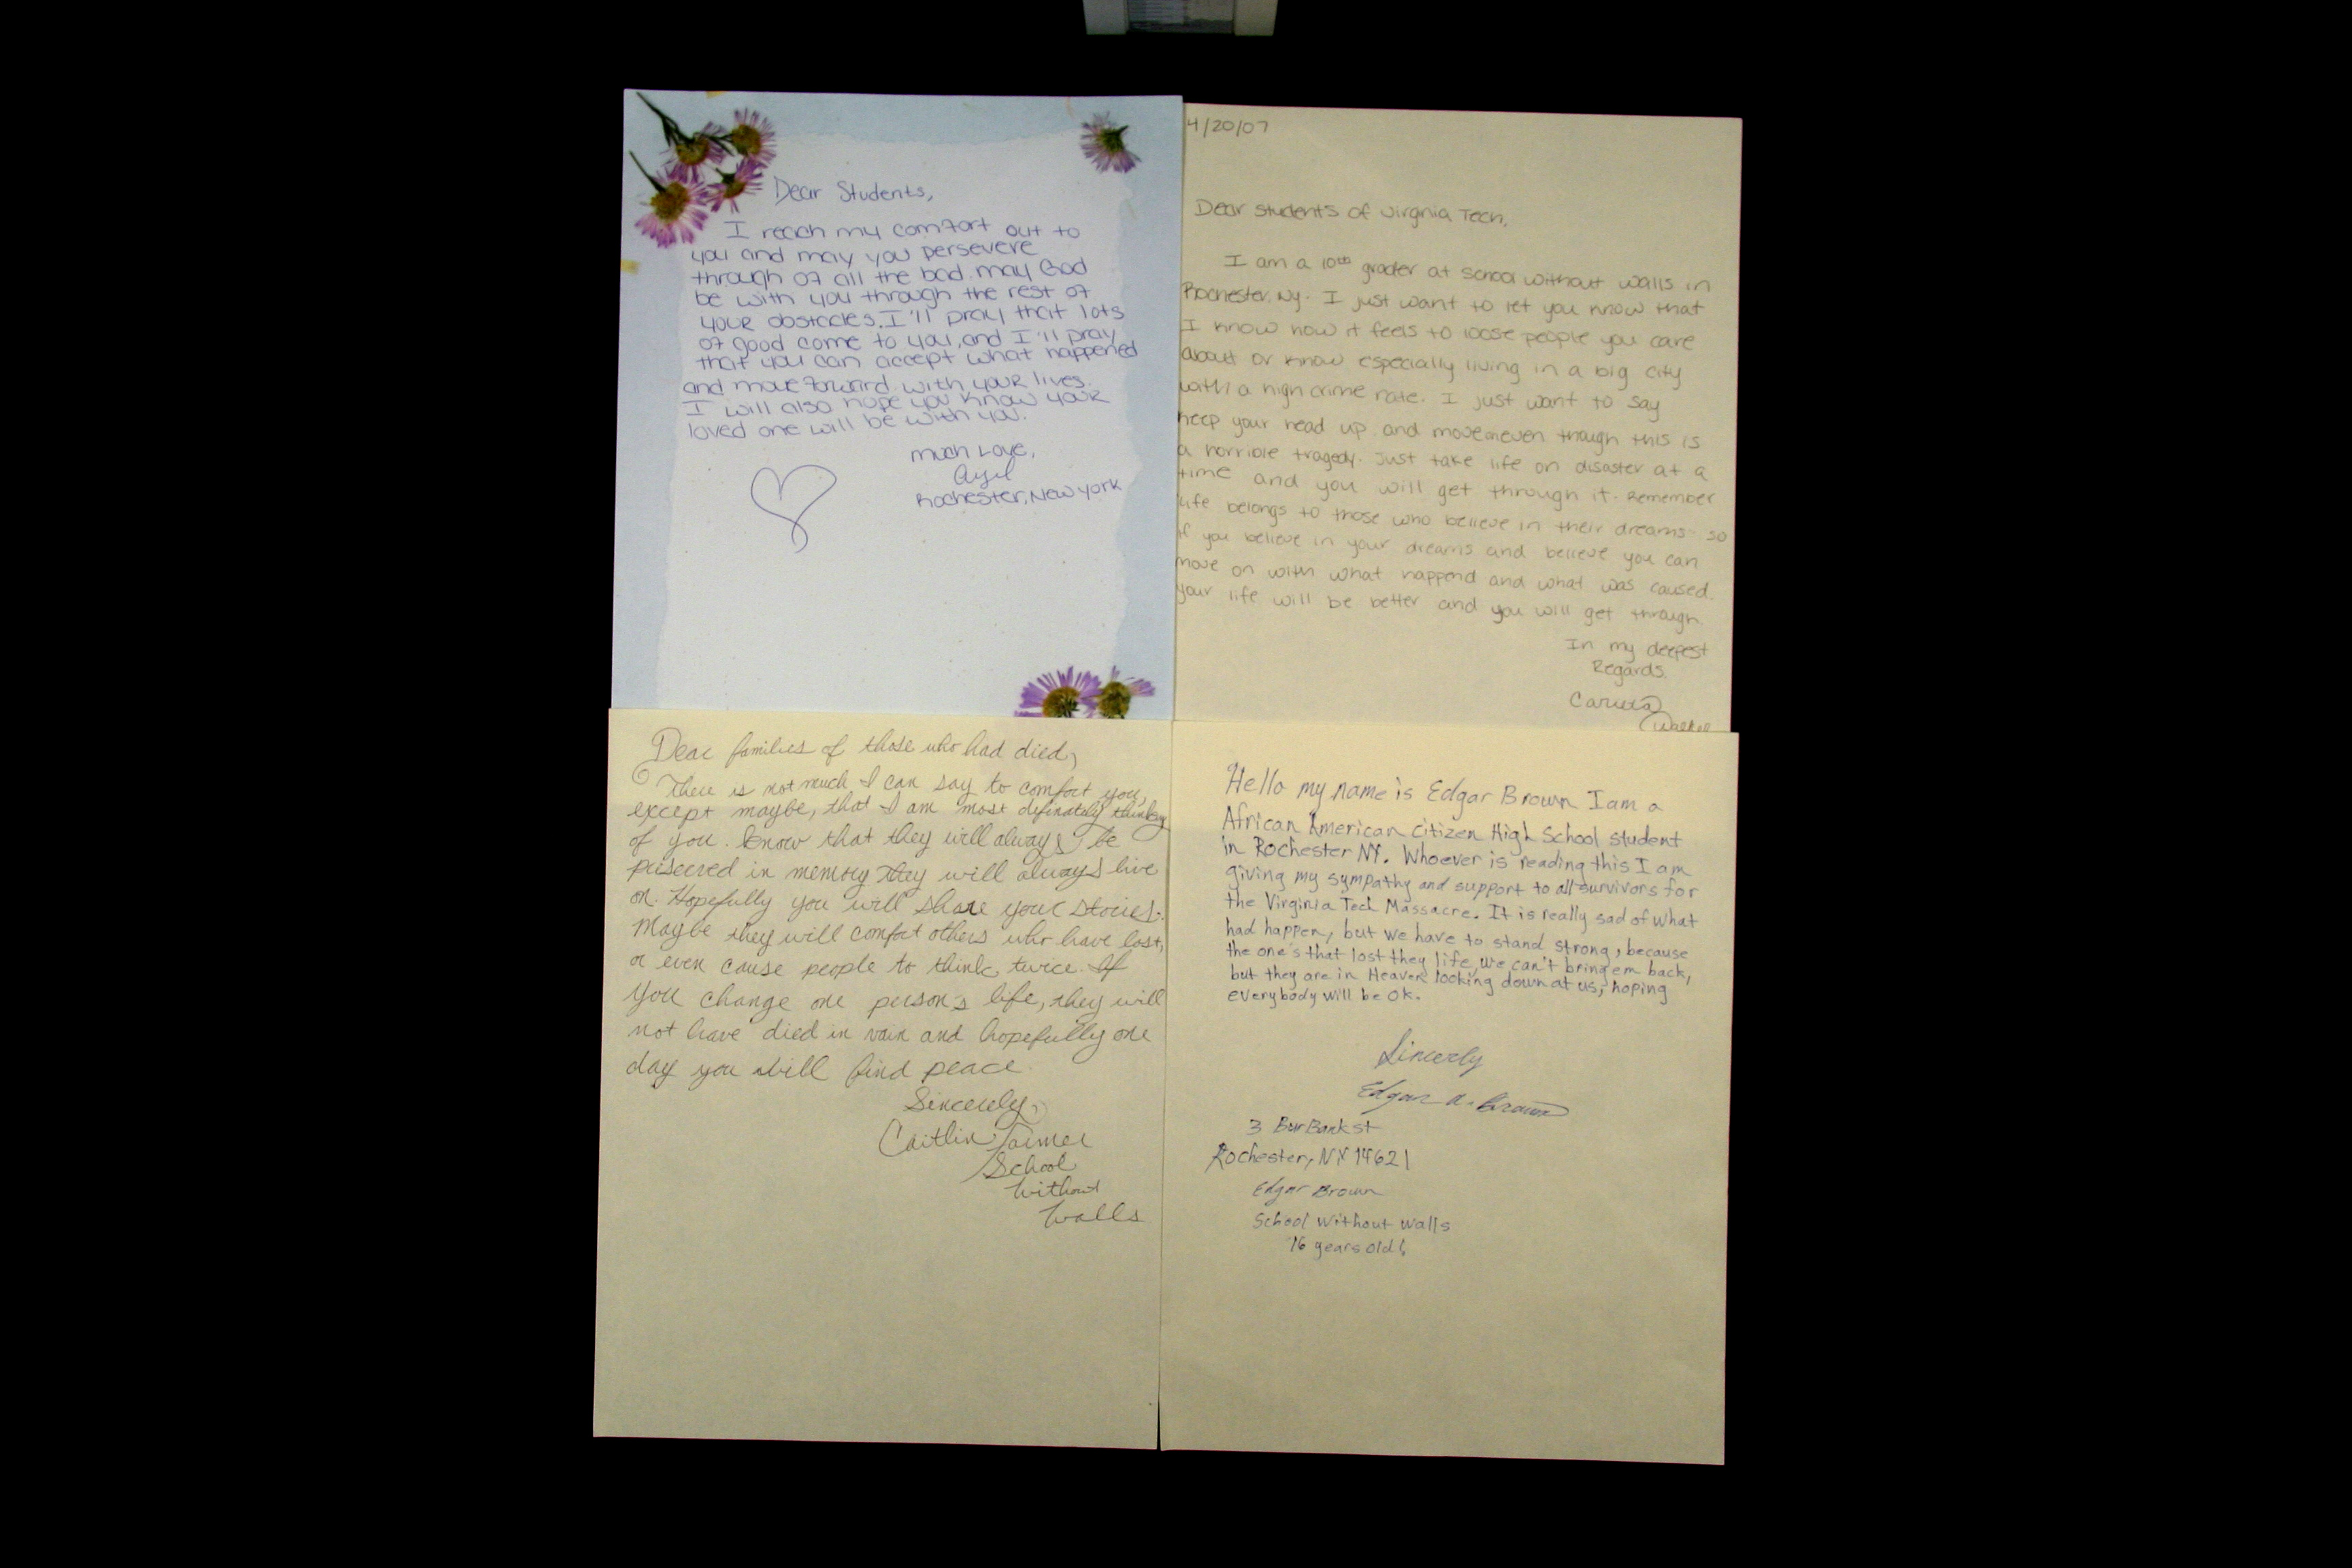 Dear Students,
I reach my comfort out to
you and may you persevere
through of all the bad. may God
be with you through the rest of
your obstacles. I'll pray that lots
of good come to you, and I'll pray
that you can accept what happened
and move forward with your lives.
I will also hope you know your
loved one will be with you.
much Love,
Rochester, New York
4/20/07
Dear students of Virgnia Tech,
I am a 10th grader at school without walls in
Rochester, Ny. I just want to let you know that
I know how it feels to loose people you care
about or know especially living in a big city
with a high crime rate. I just want to say
keep your head up and move on even though this is
a horrible tragedy. Just take life on disaster at a
time and you will get through it. Remember
life belongs to those who believe in their dreams. so
if you believe in your dreams and believe you can
move on with what happend and what was caused.
your life will be better and you will get through.
In my deepest
Regards.
Walker
Dear families of those who had died,
There is not much I can say to comfort you,
except maybe, that I am most definately thinking
of you. Know that they will always be
priserved in memory they will always live
on. Hopefully you will share your stories.
Maybe they will comfort others who have lost,
or even cause people to think twice. If
you change one person's life, they will
not have died in vain and hopefully one
day you will find peace.
Sincerely,
Caitlin
School
Without
Walls
Hello my name is Edgar Brown I am a
African American citizen High School student
in Rochester NY. Whoever is reading this I am
giving my sympathy and support to all survivors for
the Virginia Tech Massacre. It is really sad of what
had happen, but we have to stand strong, because
the one's that lost they life, we can't bring em back,
but they are in Heaven looking down at us, hoping
everybody will be ok.
Sincerly
Edgar A. Brown
3 BurBank st
Rochester, NY 14621
Edgar Brown
School Without Walls
16 years old!